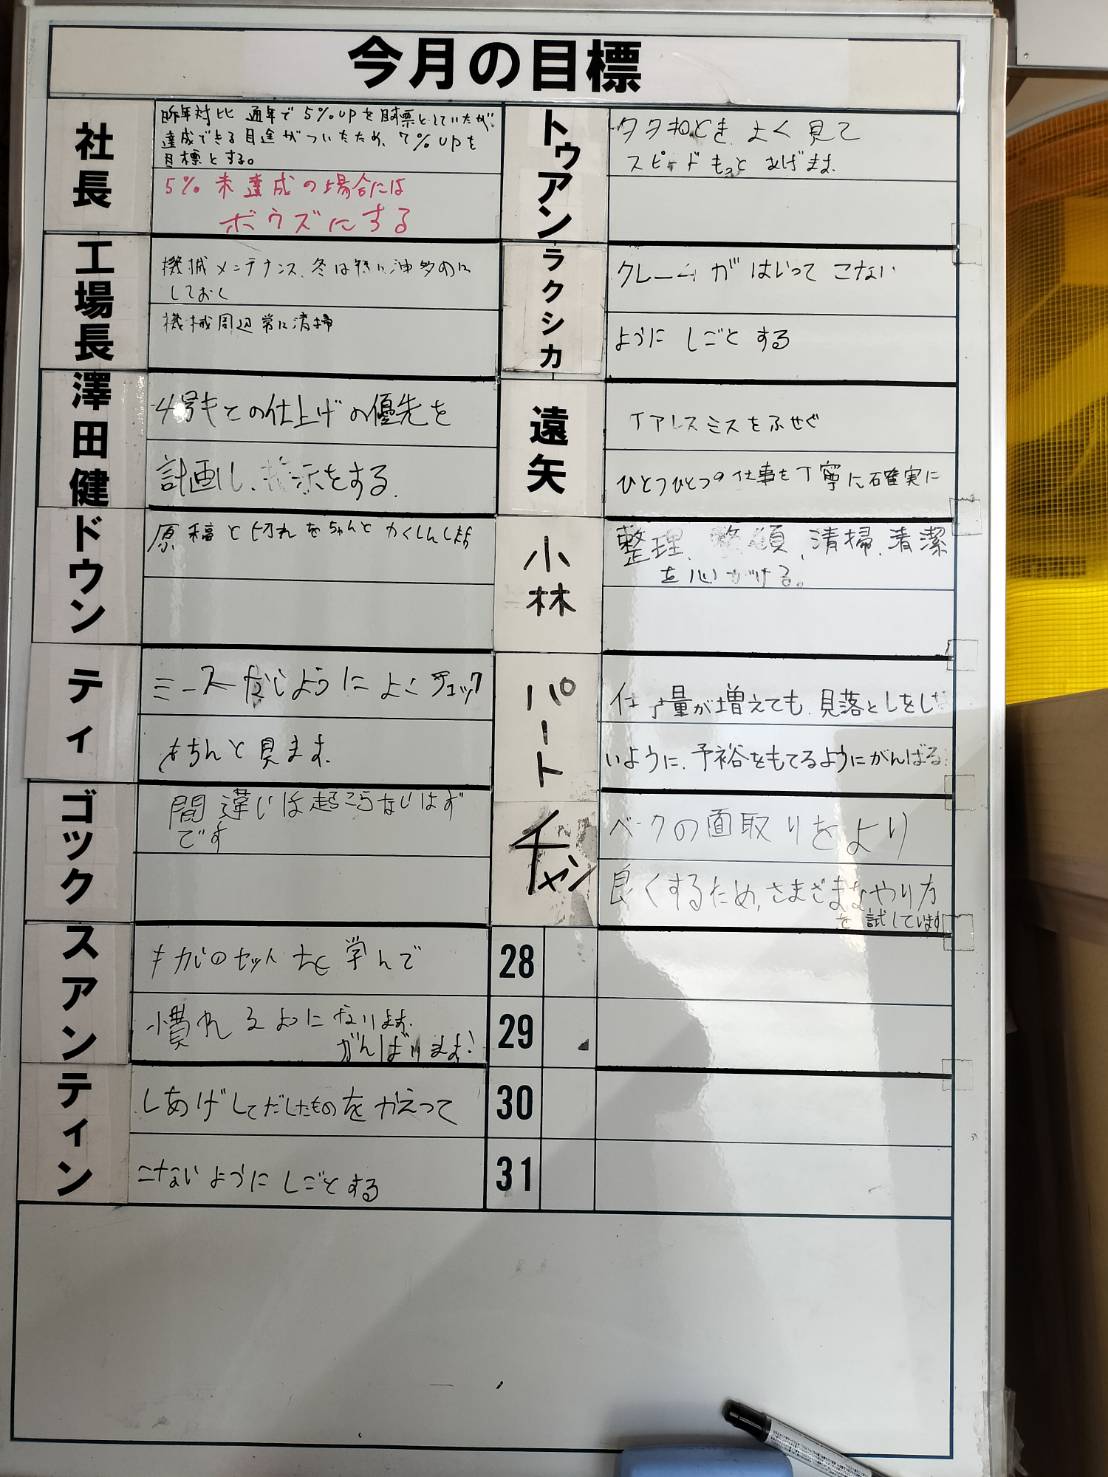 今月の目標
社長
昨年対比 通年で5%upを目標としていたが、
達成できる目途がついたため、7%upを
目標とする。
5% 未達成の場合には
ボウズにする
工場長
機械メンテナンス、冬は特に油多めに
しておく
機械周辺常に清掃
澤田健
4号キとの仕上げの優先を
計画し、指示をする。
ドウン
原稿と切れをちゃんとかくしんします
ティ
ミース
ようによくチェック
きちんと見ます。
ゴック
間違いは起こらないはず
です
スアン
キカいのセット
学んで
慣れ
なります。
がんばります!
ティン
しあげしてだしたものをかえって
こないようにしごとする
トゥアン
よく見て
スピードもっとあげます。
ラクシカ
クレームがはいってこない
ようにしごとする
遠矢
イアレスミスをふせぐ
ひとつひとつの仕事を丁寧に確実に
小林
整理、整頓、清掃、清潔
を心がける。
パート
仕事量が増えても、見落としをしな
いように、予裕をもてるようにがんばる
チャン
ベークの面取りをより
良くするため、さまざまなやり方
を試しています
28
29
30
31